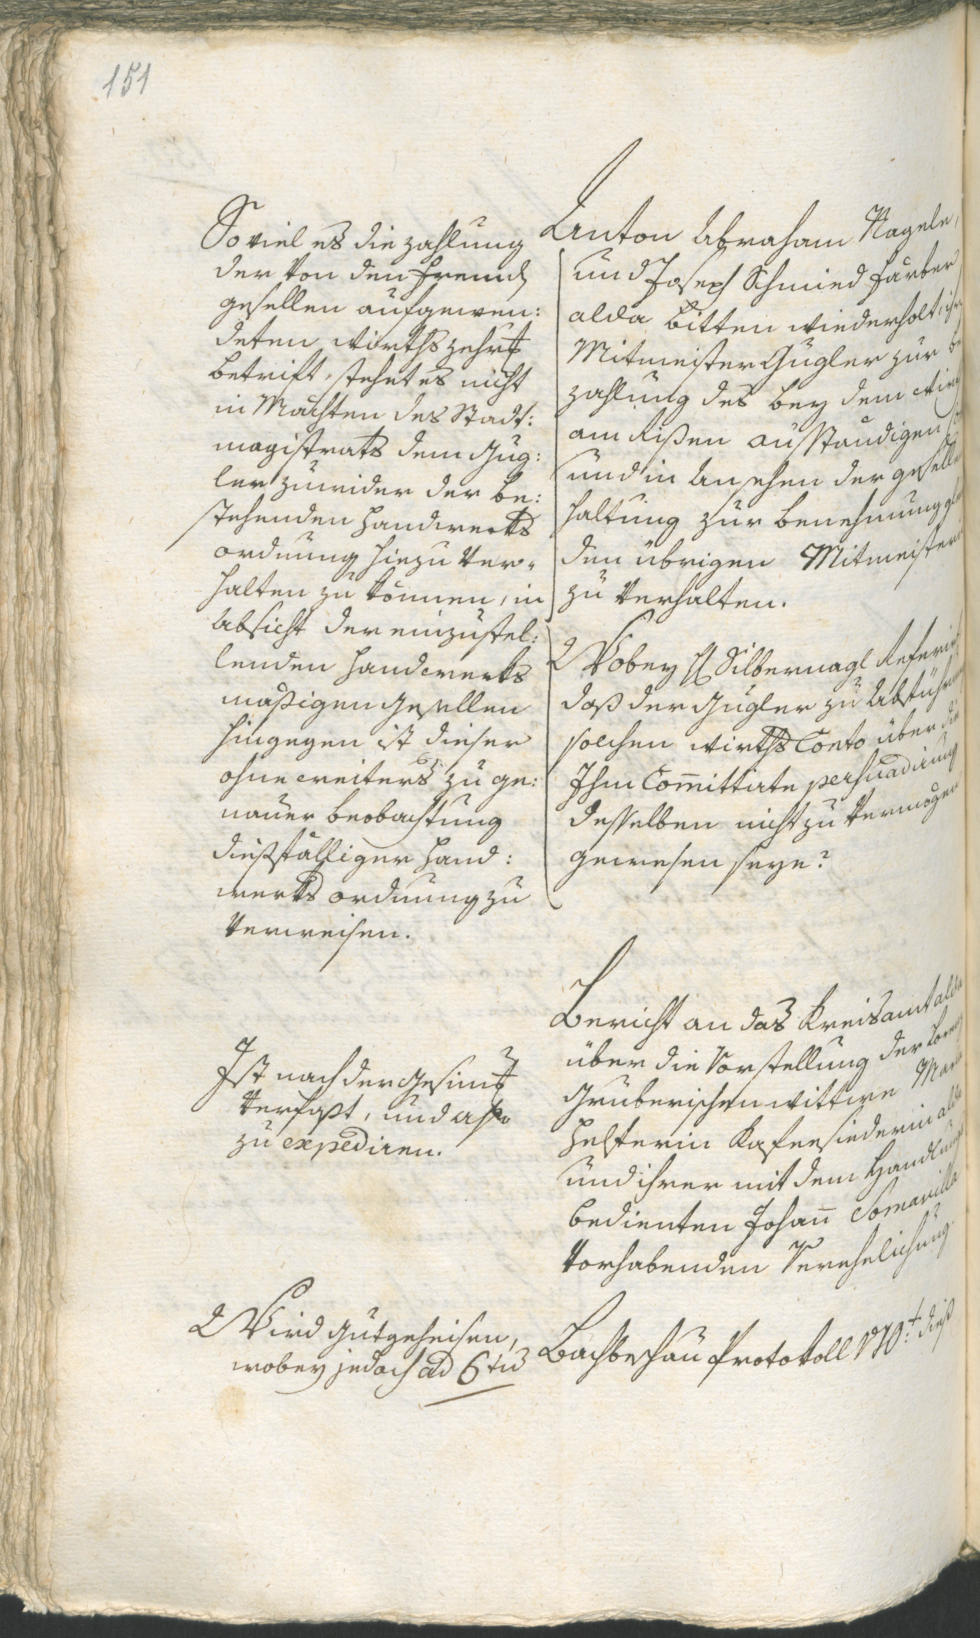 151
So viel es die zahlung
der von den fremd
gesellen aufgewen:
deten wirthszehrg
betrift, stehet es nicht
in Mächten des Stadt:
magistrats dem Gug:
ler zuwider der be:
stehenden handwerks
ordnung hiezu ver-
halten zu können, in
absicht der einzustel:
lenden handwerks
mäßigen gesellen
hingegen ist dieser
ohne weiters zu ge:
nauer beobachtung
dießfälliger hand:
werks ordnung zu
verweisen.
Ist nach der gesinnt
verfaßt, und also
zu expediren.
Wird gutgeheisen,
wobey jedoch ad 6tu
Anton Abraham Nagele,
und Joseph Schmied färber
alda bitten wiederholt
Mitmeister Gugler zur be
zahlung des bey dem
am Rißen ausständigen
und in ansehen der geselle
haltung zur benehmung
den übrigen Mitmeistern
zu verhalten.
Wobey H Silbernagl Referirt
daß der Gugler zu abführ
solchen wirths Conto über die
Ihm Committirte persuadirung
desselben nicht zu vermögen
gewesen seye?
Bericht an das Kreisamt alda
über die Vorstellung der
Gruberischen wittwe
Helferin Kafeesiederin alda
und ihrer mit dem Handlungs
bedienten Johann Somavilla
vorhabenden Verehelichung
Bachbeschau Protokoll dieß